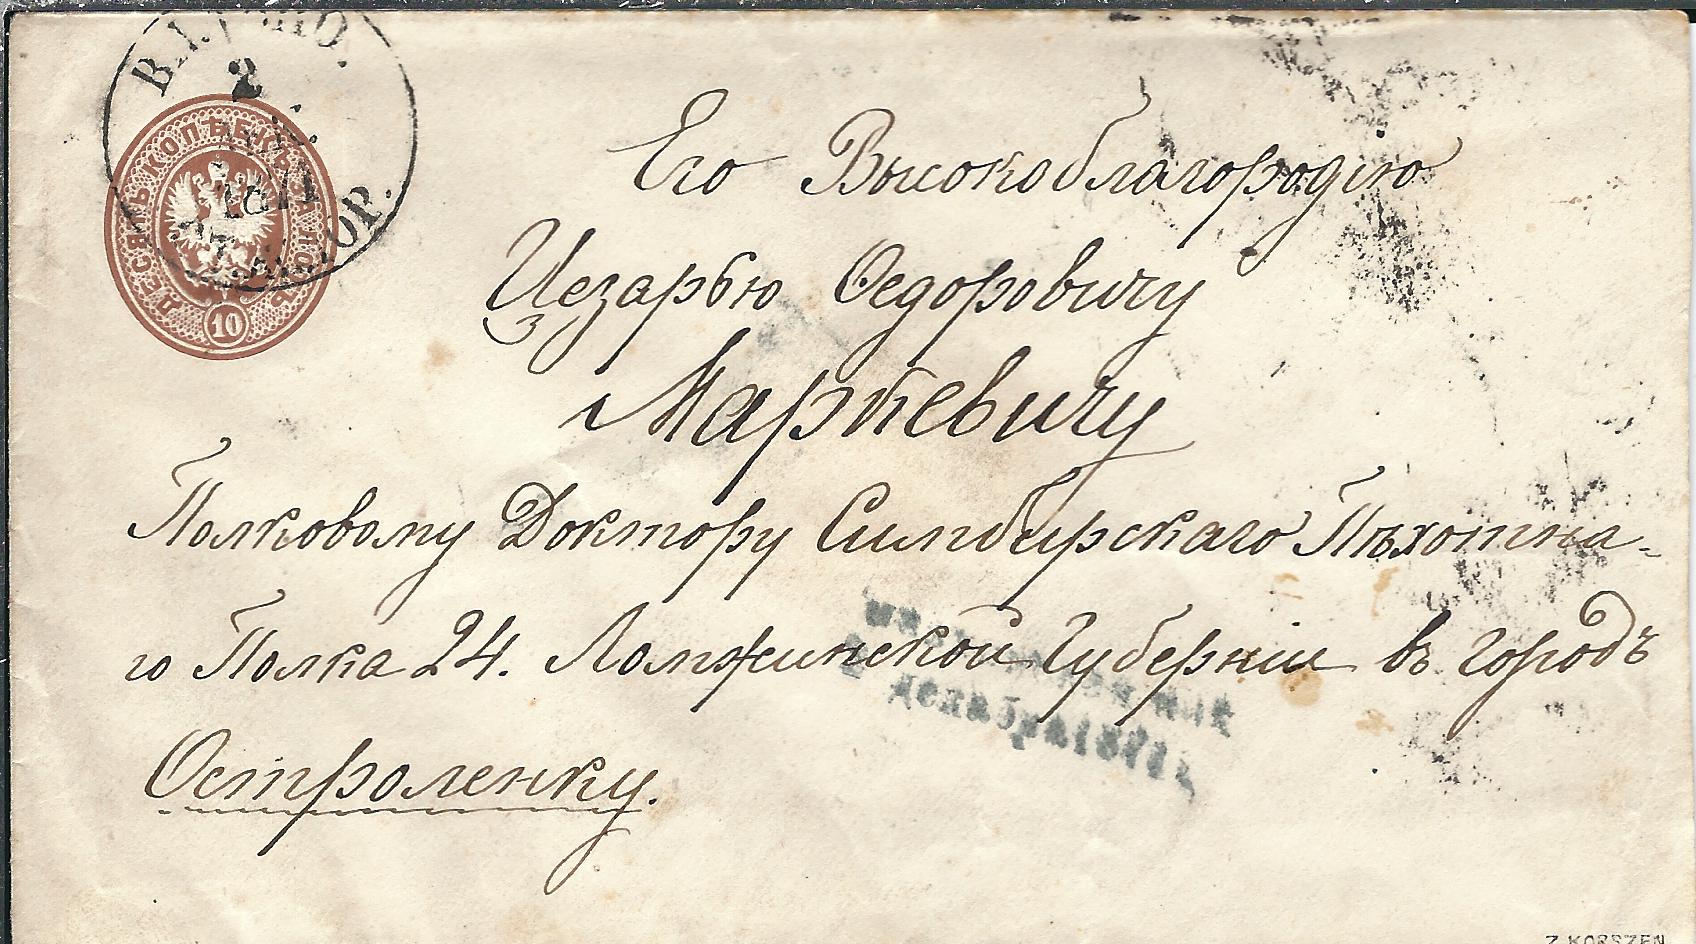 ДЕСЯТЬ КОПѢЕКЪ ЗА ЛОТЪ
10
1871
Его Высокоблагородію
Цезарью Ѳедоровичу
Маркевичу
Полковому Доктору Симбирскаго Пѣхотна-
го Полка 24. Ломжинской Губерніи въ городъ
Остроленку.
2 декабря 1871
Z. KORSZEN